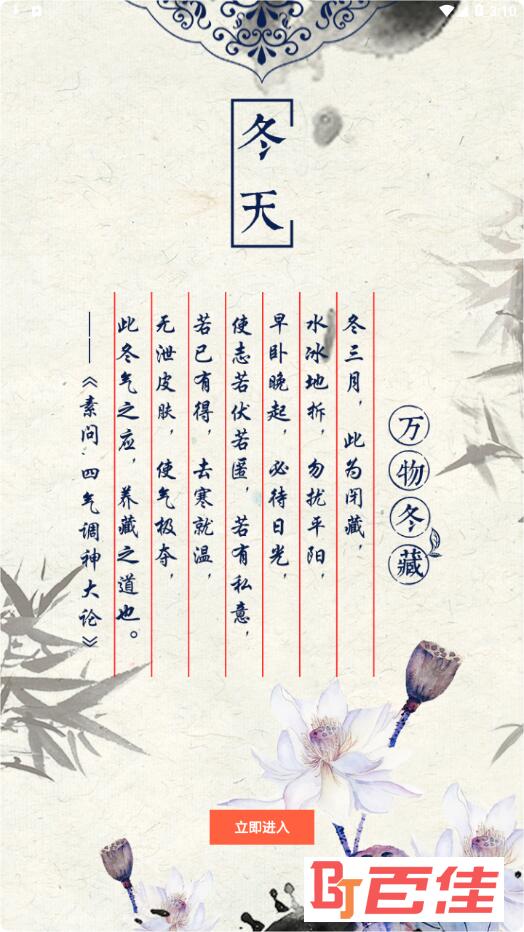 3:10
冬天
万物冬藏
冬三月，此为闭藏，
水冰地拆，勿扰平阳，
早卧晚起，必待日光，
使志若伏若匿，若有私意，
若已有得，去寒就温，
无泄皮肤，使气极夺，
此冬气之应，养藏之道也。
——《素问·四气调神大论》
立即进入
百佳